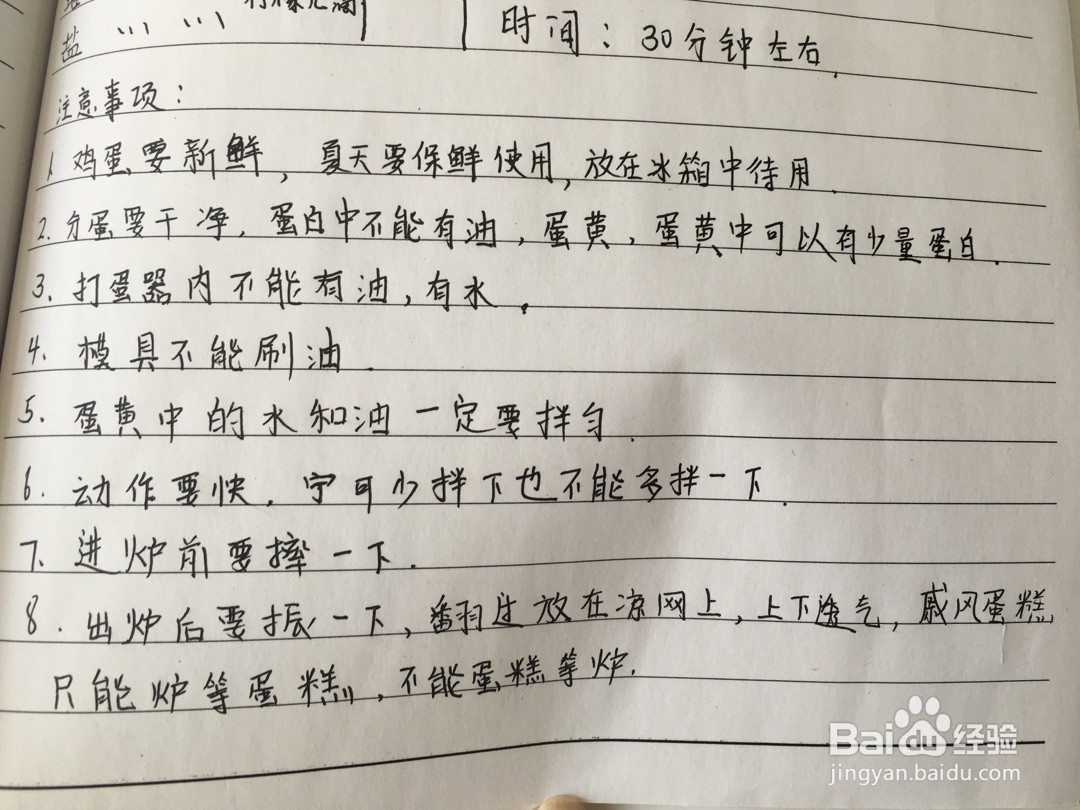 盐
时间：30分钟左右.
注意事项：
1. 鸡蛋要新鲜，夏天要保鲜使用，放在冰箱中待用.
2. 分蛋要干净，蛋白中不能有油，蛋黄，蛋黄中可以有少量蛋白.
3. 打蛋器内不能有油，有水。
4. 模具不能刷油.
5. 蛋黄中的水和油一定要拌匀.
6. 动作要快，宁可少拌下也不能多拌一下.
7. 进炉前要摔一下.
8. 出炉后要振一下，翻过放在凉网上，上下透气，戚风蛋糕
只能炉等蛋糕，不能蛋糕等炉.
Baidu 经验
jingyan.baidu.com